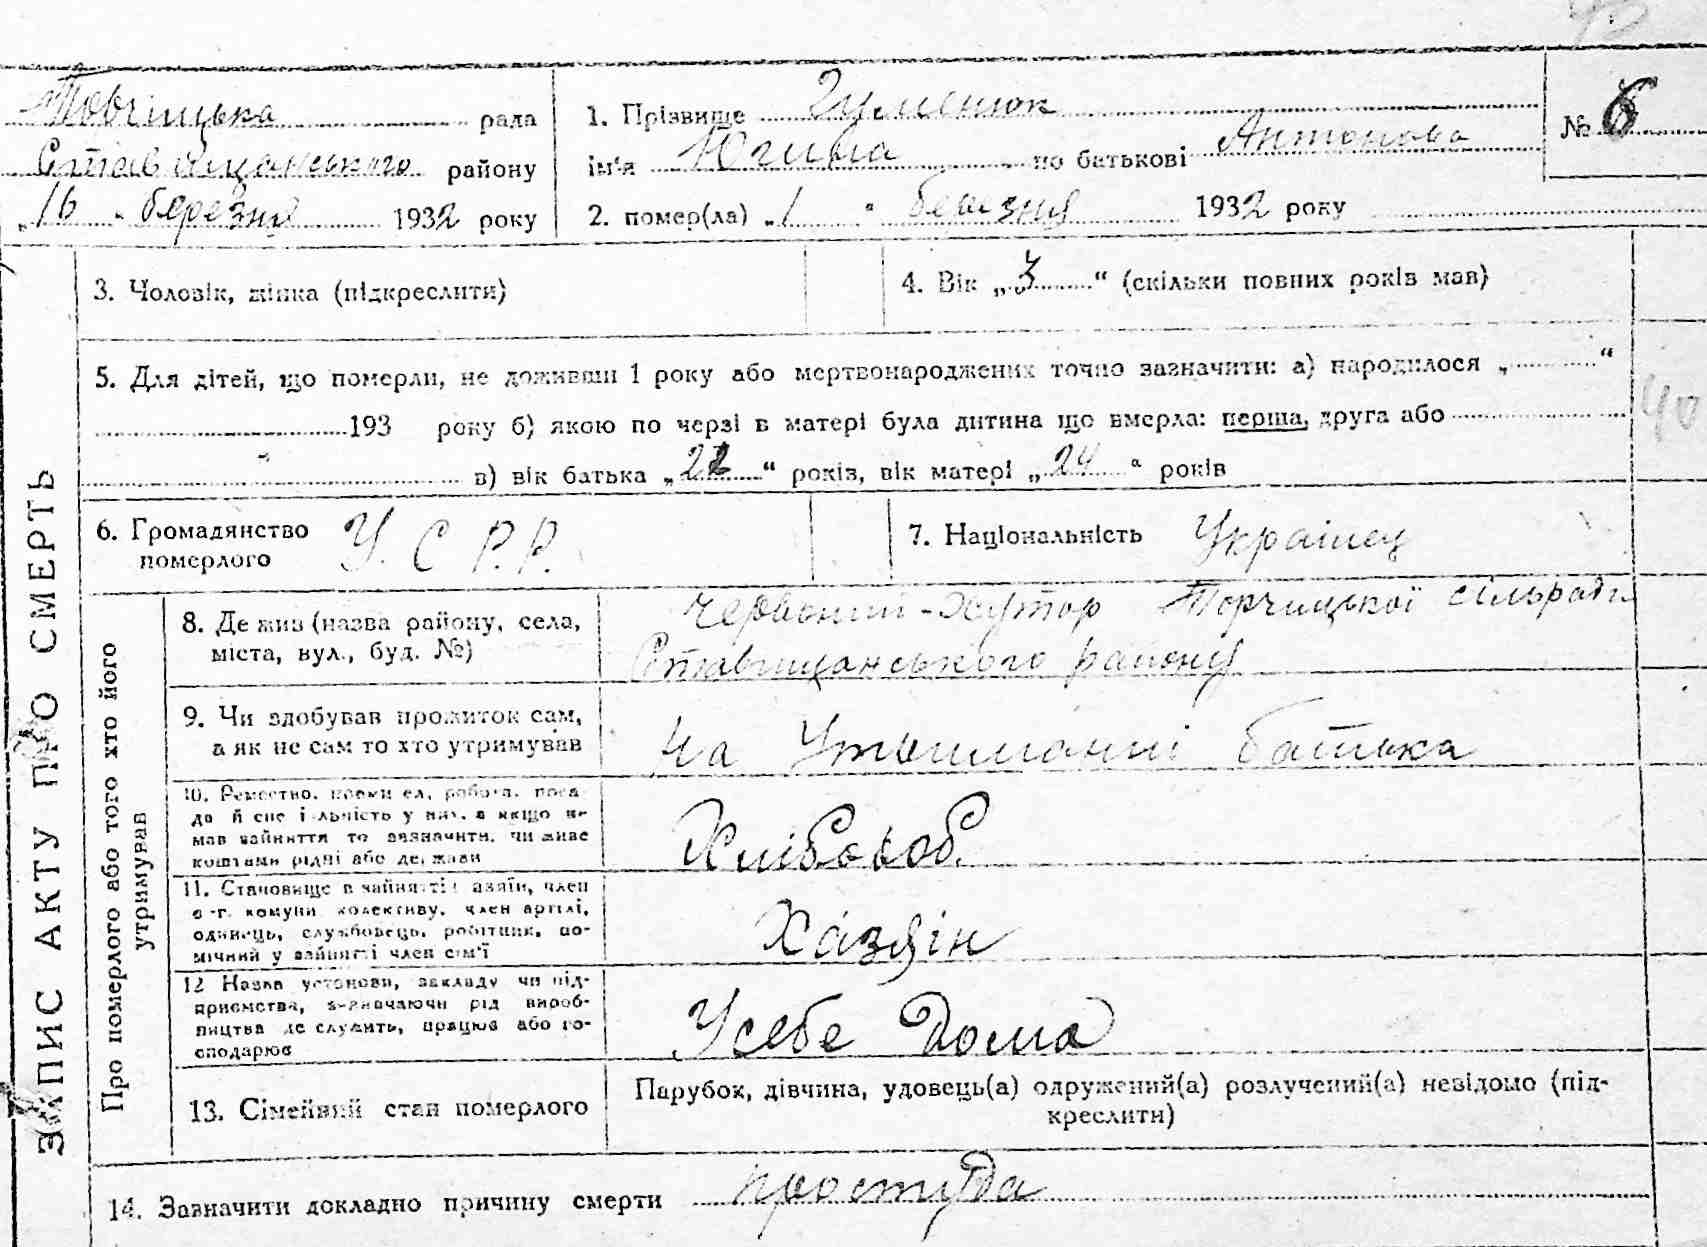 Торчицька рада
Ставищанського району
„16“ березня 1932 року
1. Прізвище Гуменюк
ім'я Югина по батькові Антонова
2. помер(ла) „1“ березня 1932 року
№ 6
3. Чоловік, жінка (підкреслити)
4. Вік „3“ (скільки повних років мав)
5. Для дітей, що померли, не доживши 1 року або мертвонароджених точно зазначити: а) народилося „ “
193 року б) якою по черзі в матері була дитина що вмерла: перша, друга або
в) вік батька „22“ років, вік матері „24“ років
40
6. Громадянство
померлого
У. С Р. Р.
7. Національність Українец
ЗАПИС АКТУ ПРО СМЕРТЬ
Про померлого або того хто його
утримував
8. Де жив (назва району, села,
міста, вул., буд. №)
Червоний-Хутор Торчицької сільради
Ставищанського району
9. Чи здобував прожиток сам,
а як не сам то хто утримував
На Утриманні батька
10. Ремество, робота, поса-
да й у них, а якщо не
мав зайняття то зазначити, чи живе
коштами рідні або держави
Хлібороб
11. Становище в занятті: хазяїн, член
с-г. комуни, колективу, член артілі,
одинець, службовець, робітник, по-
мічний у занятті член сім'ї
Хазяін
12 Назва установи, закладу чи під-
приємства, зазначаючи рід вироб-
ництва де служить, працює або го-
сподарює
Усебе Дома
13. Сімейний стан померлого
Парубок, дівчина, удовець(а) одружений(а) розлучений(а) невідомо (під-
креслити)
14. Зазначити докладно причину смерти простуда